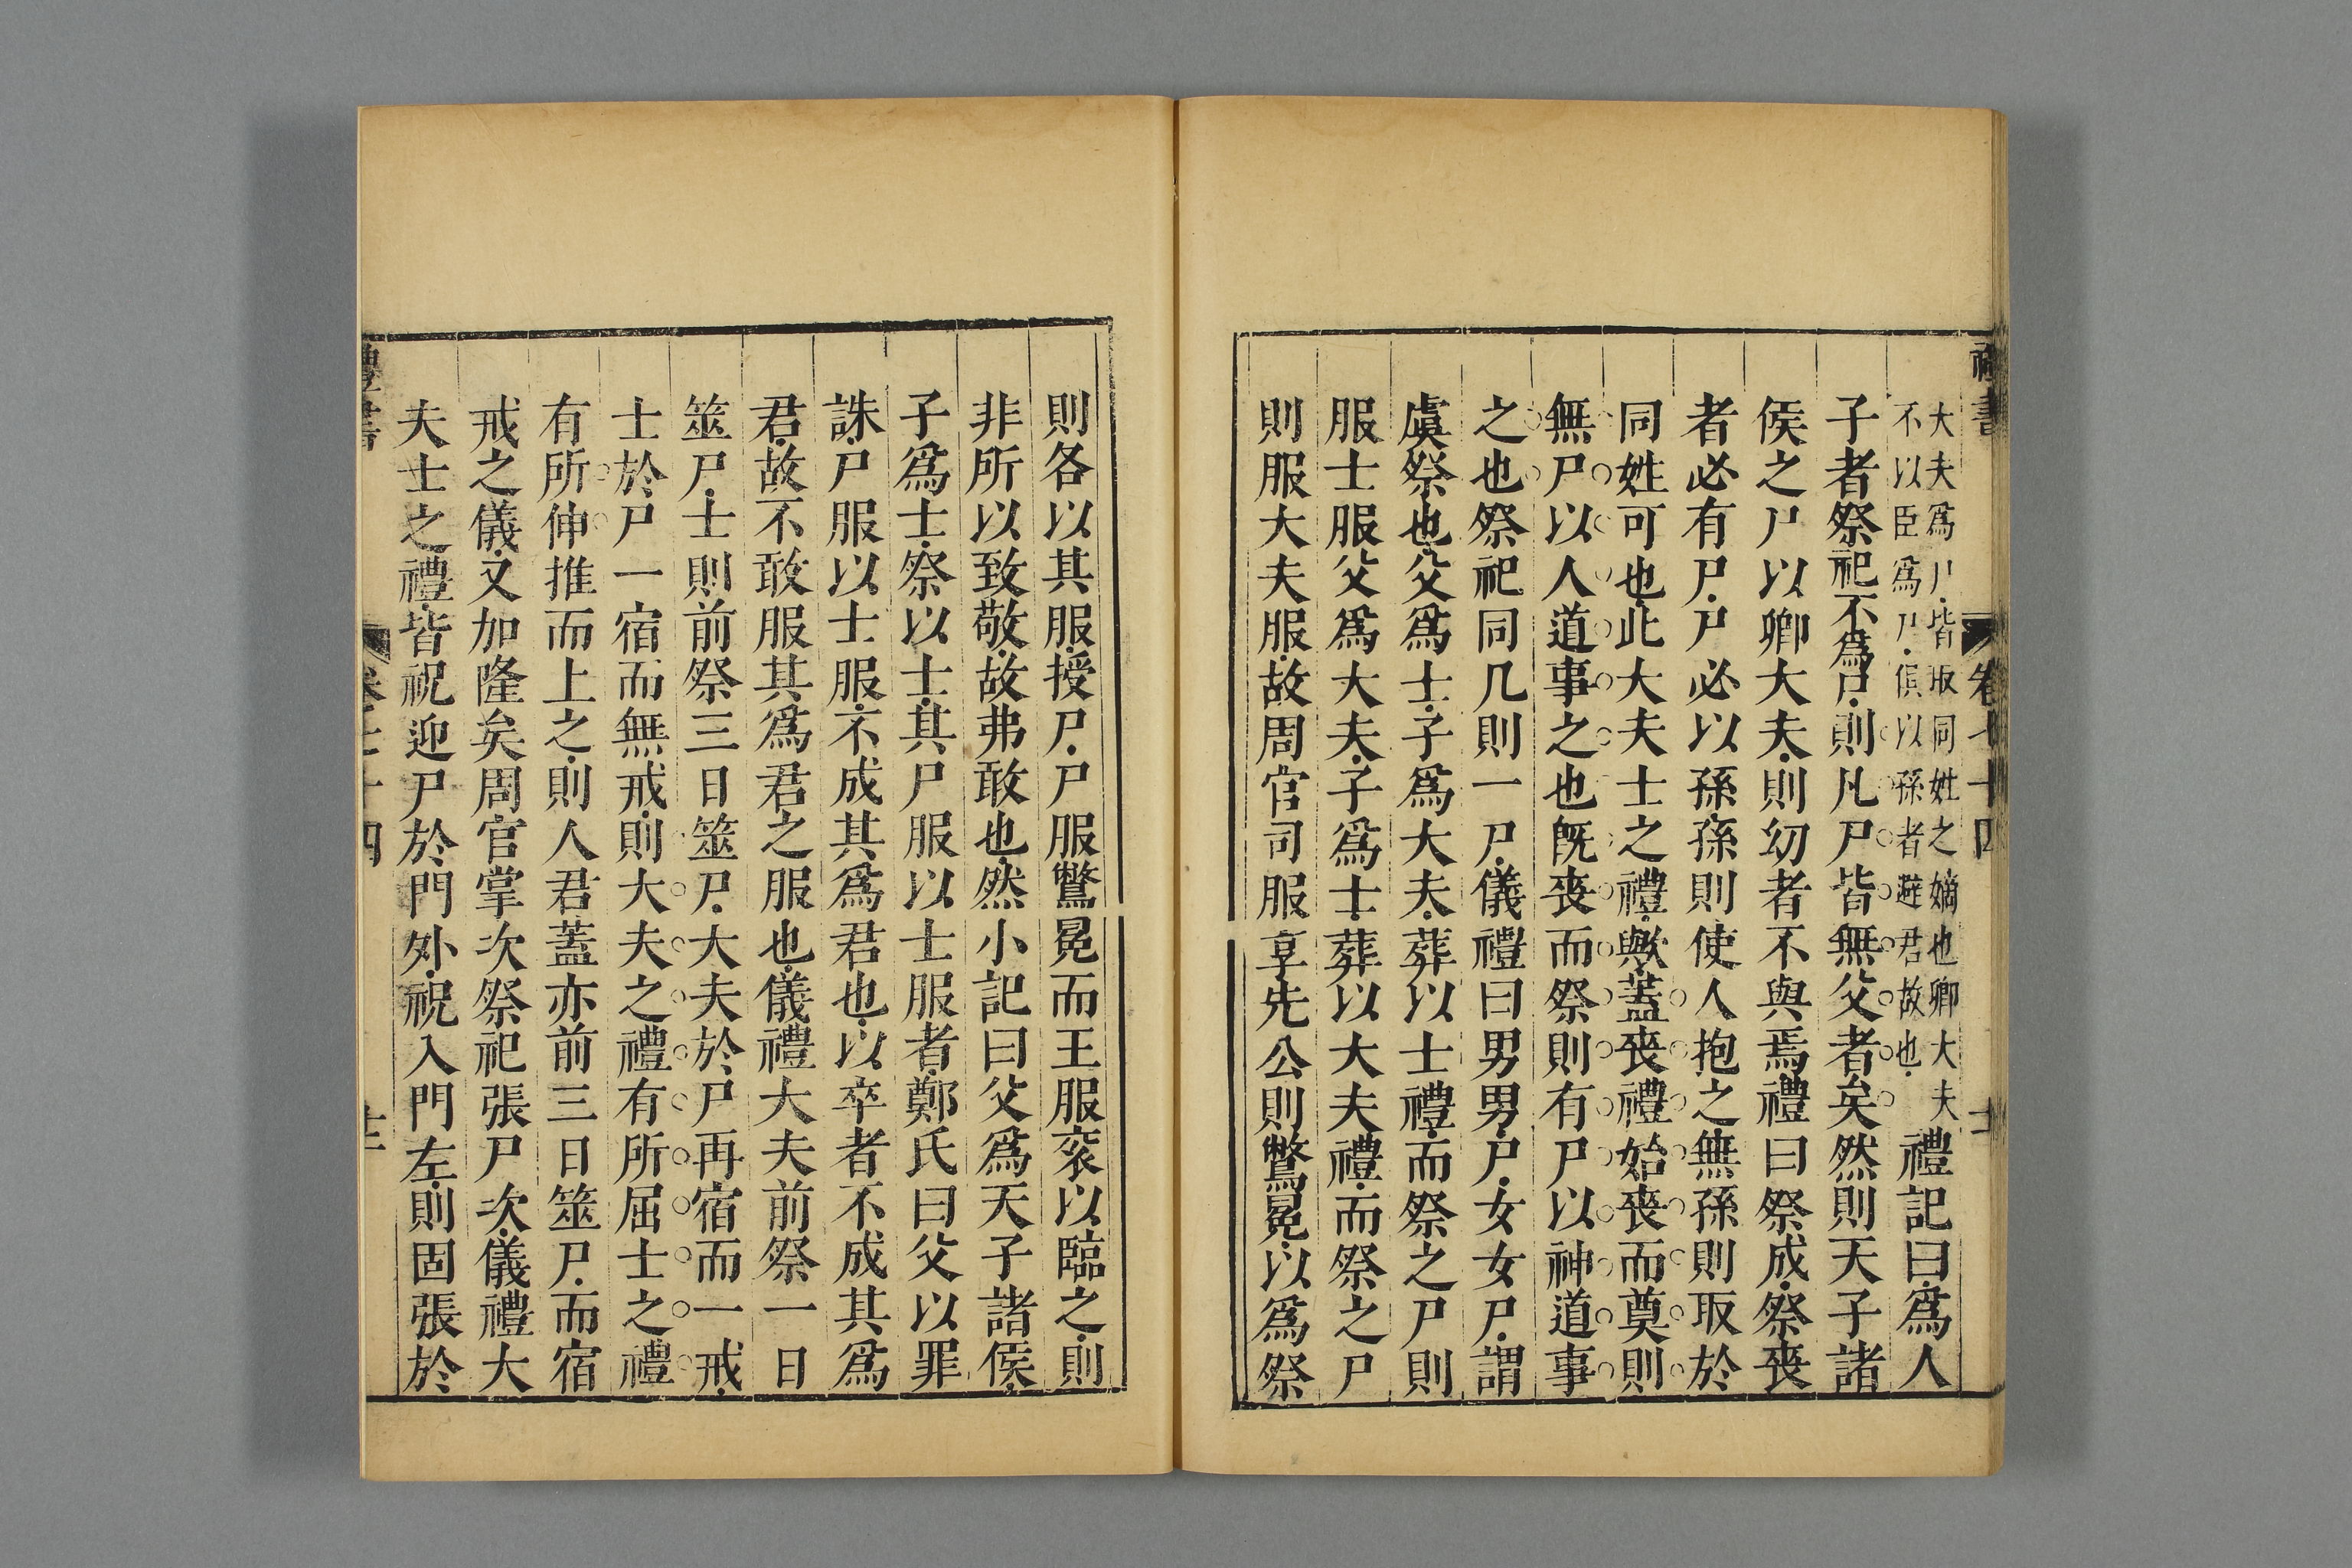 禮書
卷七十四
大夫爲尸皆取同姓之嫡也卿大夫
不以臣爲尸俱以孫者避君故也
禮記曰爲人
子者祭祀不爲尸則凡尸皆無父者矣然則天子諸
侯之尸以卿大夫則幼者不與焉禮曰祭成祭喪
者必有尸尸必以孫孫則使人抱之無孫則取於
同姓可也此大夫士之禮歟蓋喪禮始喪而奠則
無尸以人道事之也旣喪而祭則有尸以神道事
之也祭祀同几則一尸儀禮曰男男尸女女尸謂
虞祭也父爲士子爲大夫葬以士禮而祭之尸則
服士服父爲大夫子爲士葬以大夫禮而祭之尸
則服大夫服故周官司服享先公則鷩冕以爲祭
則各以其服授尸尸服鷩冕而王服衮以臨之則
非所以致敬故弗敢也然小記曰父爲天子諸侯
子爲士祭以士其尸服以士服者鄭氏曰父以罪
誅尸服以士服不成其爲君也以卒者不成其爲
君故不敢服其爲君之服也儀禮大夫前祭一日
筮尸士則前祭三日筮尸大夫於尸再宿而一戒
士於尸一宿而無戒則大夫之禮有所屈士之禮
有所伸推而上之則人君蓋亦前三日筮尸而宿
戒之儀又加隆矣周官掌次祭祀張尸次儀禮大
夫士之禮皆祝迎尸於門外祝入門左則固張於
禮書
卷七十四